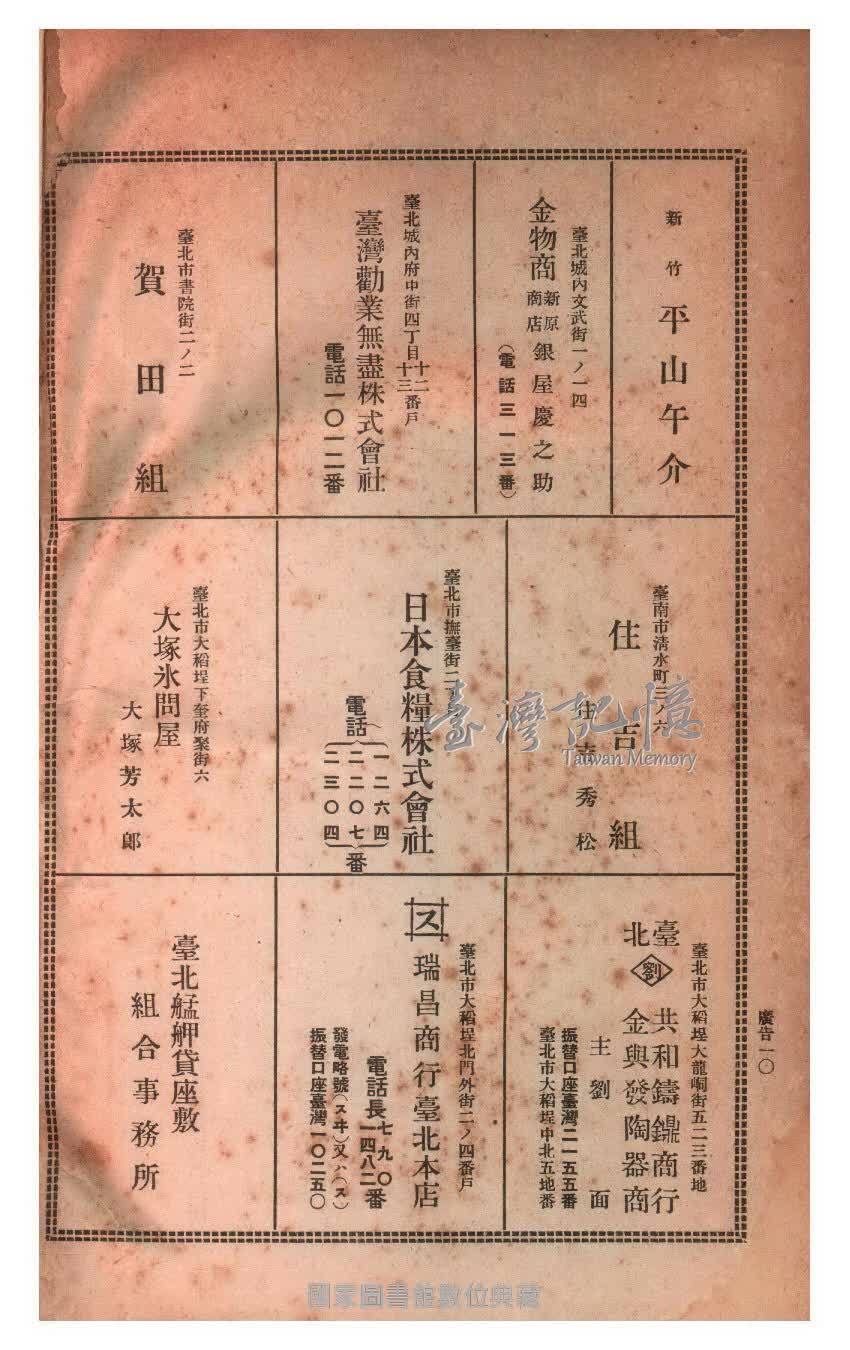 廣告一〇
新竹
平山午介
臺北城內文武街一ノ一四
金物商
新原
商店
銀屋慶之助
(電話三一三番)
臺北城內府中街四丁目十二
十三番戶
臺灣勸業無盡株式會社
電話一〇一二番
臺北市書院街二ノ二
賀田組
臺南市清水町三ノ六
住吉組
住吉秀松
臺北市撫臺街二丁目
日本食糧株式會社
電話
一二六四
二二〇七
二三〇四
番
臺北市大稻埕下奎府聚街六
大塚氷問屋
大塚芳太郎
臺北市大稻埕大龍峒街五二三番地
臺北
劉
共和鑄鼎商行
金興發陶器商
主劉面
振替口座臺灣二一五五番
臺北市大稻埕中北五地番
臺北市大稻埕北門外街二ノ四番戶
ス
瑞昌商行臺北本店
電話長
七九〇
一四八二
番
發電略號(スヰ)又ハ(ス)
振替口座臺灣一〇二五〇
臺北艋舺貸座敷
組合事務所
臺灣記憶
Taiwan Memory
國家圖書館數位典藏